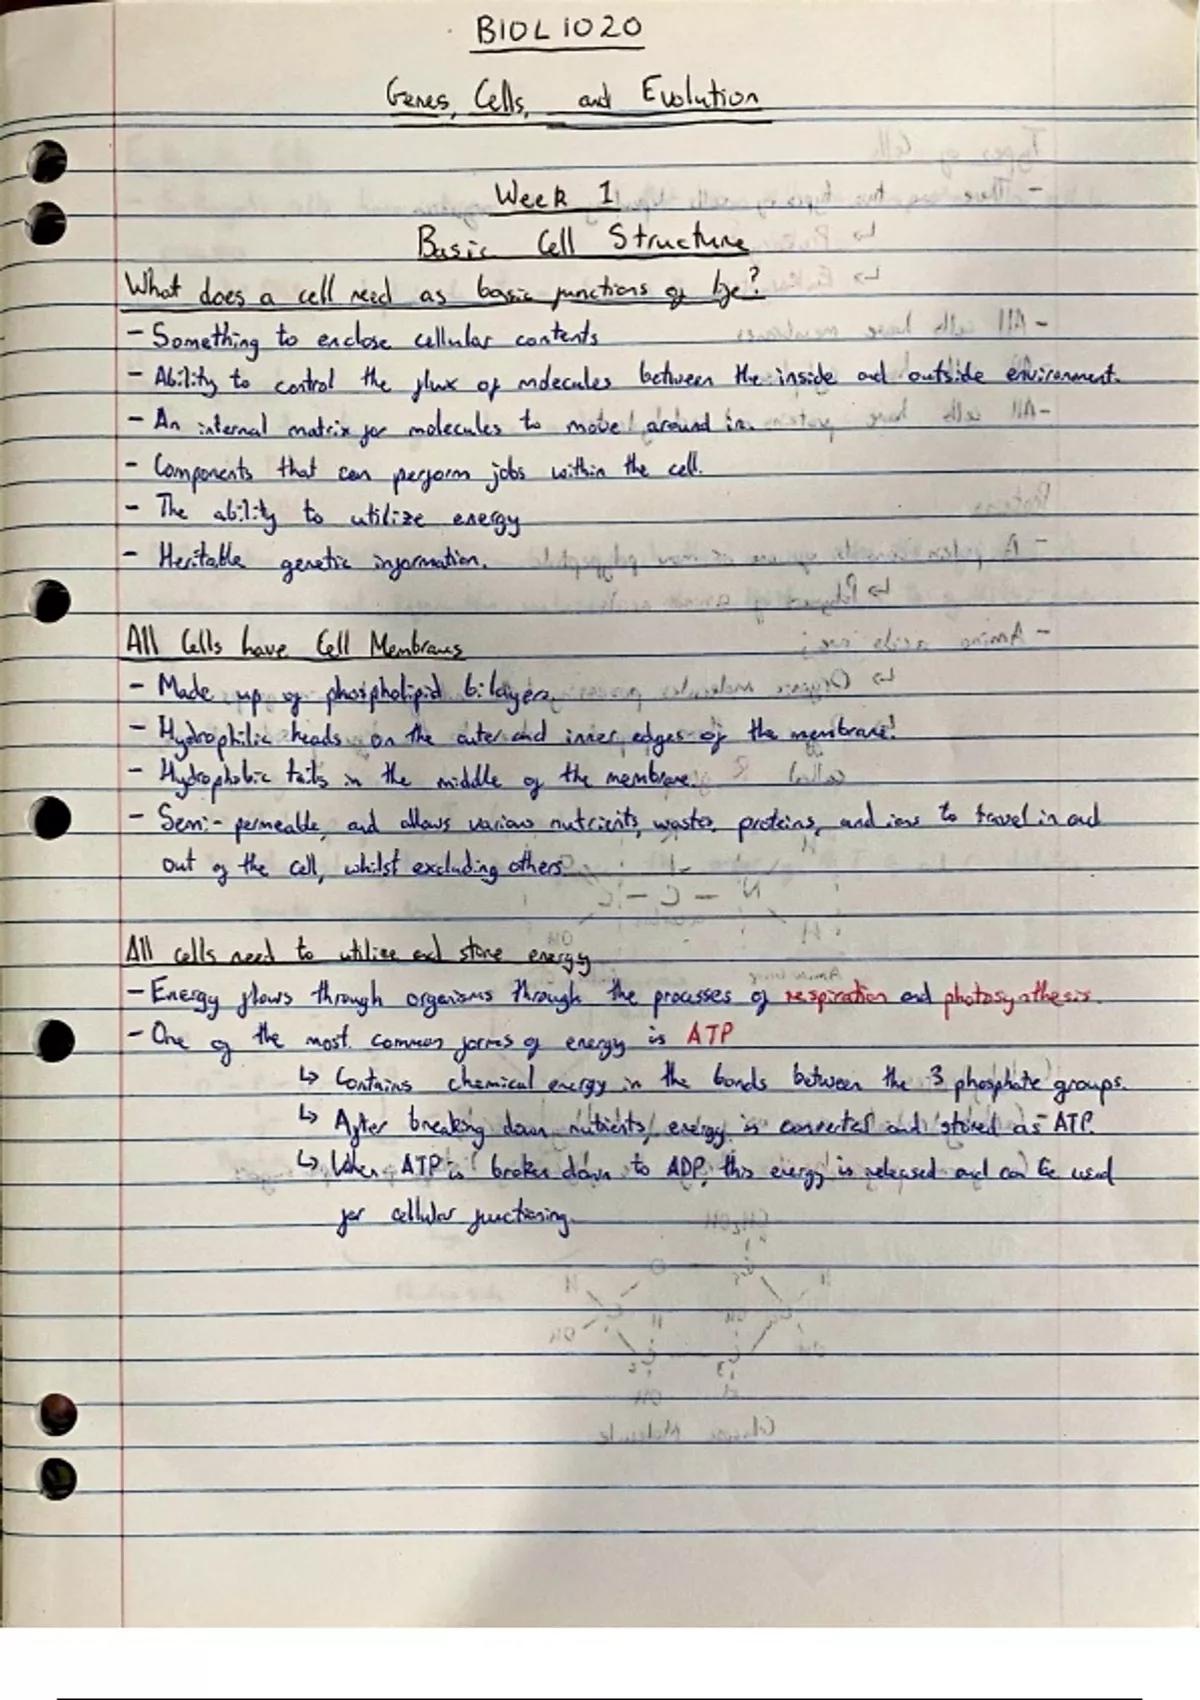 BIOL1020
Genes, Cells, and Evolution
Week 1
Basic Cell Structure
What does a cell need as basic functions of life?
- Something to enclose cellular contents
- Ability to control the flux of molecules between the inside and outside environment.
- An internal matrix for molecules to move around in.
- Components that can perform jobs within the cell.
- The ability to utilize energy
- Heritable genetic information.
All Cells have Cell Membranes
- Made up of phospholipid bilayers.
- Hydrophilic heads on the outer and inner edges of the membrane.
- Hydrophobic tails in the middle of the membrane.
- Semi-permeable, and allows various nutrients, wastes, proteins, and ions to travel in and
out of the cell, whilst excluding others.
All cells need to utilize and store energy
- Energy flows through organisms through the processes of respiration and photosynthesis.
- One of the most common forms of energy is ATP
↳ Contains chemical energy in the bonds between the 3 phosphate groups.
↳ After breaking down nutrients, energy is converted and stored as ATP.
↳ When ATP is broken down to ADP, this energy is released and can be used
for cellular functioning.